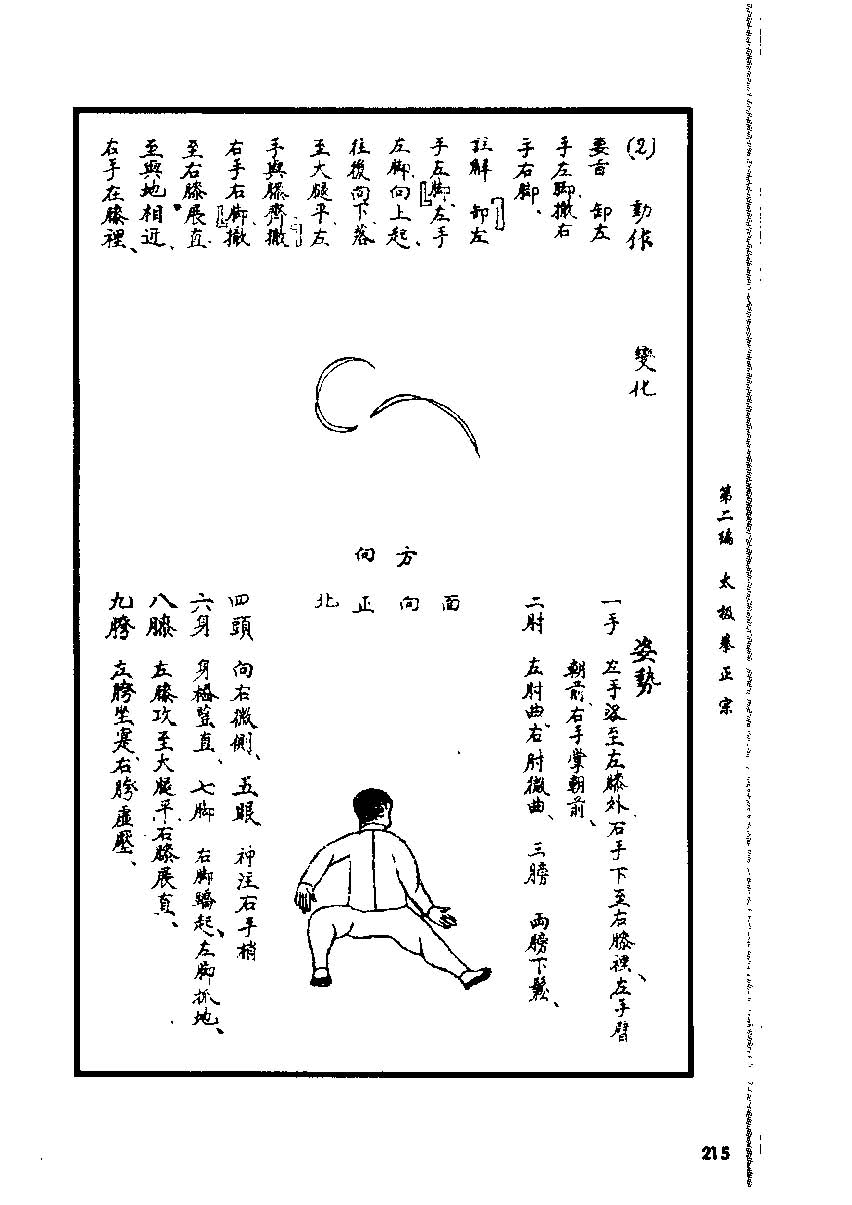 (2) 動作
要旨 卸左
手左脚、撤右
手右脚、
註解 卸左
手左脚、左手
左脚、向上起、
往後向下落
至大腿平、左
手與膝齊、撤
右手右脚、撤
至右膝展直
至與地相近、
右手在膝裡、
變化
方向
面向正北
姿勢
一手 左手落至左膝外、右手下至右膝裡、左手臂
朝前、右手掌朝前、
二肘 左肘曲、右肘微曲、 三膀 両膀下鬆、
四頭 向右微側、 五眼 神注右手梢
六身 身樁豎直、 七脚 右脚蹺起、左脚抓地、
八膝 左膝攻至大腿平、右膝展直、
九胯 左胯坐寔、右胯虛壓、
第二編 太极拳正宗
215